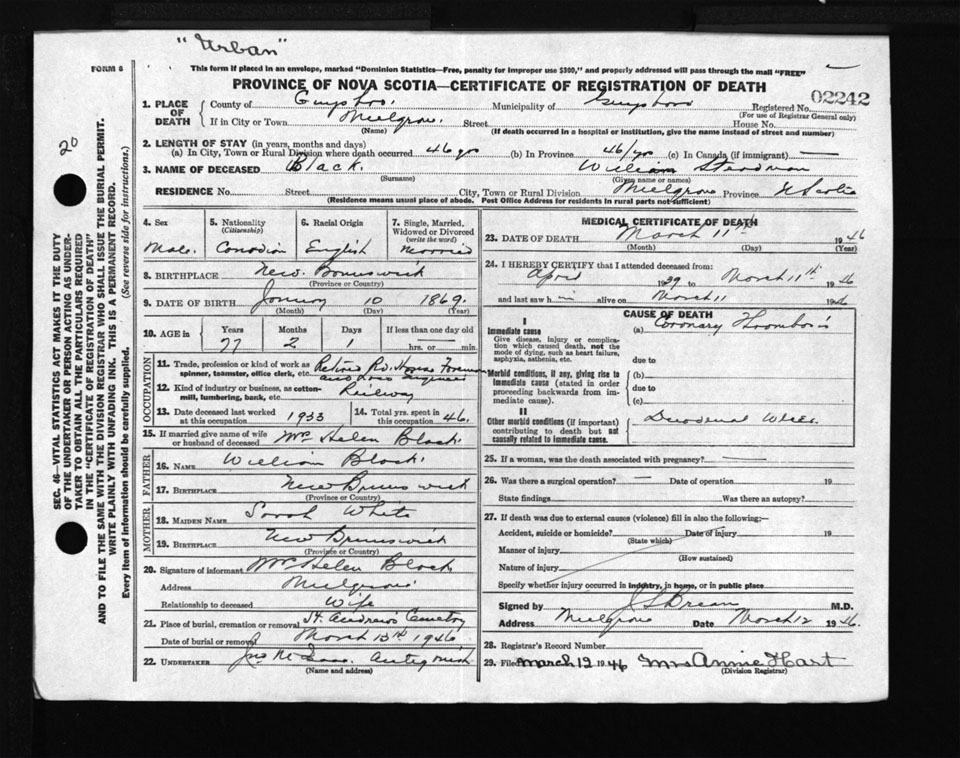 "Urban"
FORM 8
This form if placed in an envelope, marked "Dominion Statistics—Free, penalty for improper use $300," and properly addressed will pass through the mail "FREE"
PROVINCE OF NOVA SCOTIA—CERTIFICATE OF REGISTRATION OF DEATH
02242
1. PLACE OF DEATH { County of Guysboro. Municipality of Guysboro Registered No.
(For use of Registrar General only)
If in City or Town Mulgrave. Street House No.
(Name) (If death occurred in a hospital or institution, give the name instead of street and number)
2. LENGTH OF STAY (in years, months and days)
(a) In City, Town or Rural Division where death occurred 46 yrs (b) In Province 46 yrs (c) In Canada (if immigrant) —
3. NAME OF DECEASED Black. William Steadman
(Surname) (Given name or names)
RESIDENCE No. Street City, Town or Rural Division Mulgrave Province N Scotia
(Residence means usual place of abode. Post Office Address for residents in rural parts not sufficient)
4. Sex Male.
5. Nationality (Citizenship) Canadian
6. Racial Origin English
7. Single, Married, Widowed or Divorced (write the word) Married
8. BIRTHPLACE New. Brunswick
(Province or Country)
9. DATE OF BIRTH January 10 1869.
(Month) (Day) (Year)
10. AGE in Years Months Days If less than one day old
77 2 1 hrs. or min.
OCCUPATION
11. Trade, profession or kind of work as spinner, teamster, office clerk, etc. Retired Rd. House Foreman
and Loco Engineer
12. Kind of industry or business, as cotton-mill, lumbering, bank, etc. Railway
13. Date deceased last worked at this occupation 1933 14. Total yrs. spent in this occupation 46.
15. If married give name of wife or husband of deceased Mrs Helen Black.
FATHER
16. NAME William Black.
17. BIRTHPLACE New Brunswick
(Province or Country)
MOTHER
18. MAIDEN NAME Sarah White
19. BIRTHPLACE New Brunswick
(Province or Country)
20. Signature of informant Mrs Helen Black
Address Mulgrave
Relationship to deceased Wife
21. Place of burial, cremation or removal St. Andrews Cemetry
Date of burial or removal March 13th 1946
22. UNDERTAKER Antigonish
(Name and address)
MEDICAL CERTIFICATE OF DEATH
23. DATE OF DEATH March 11th 1946
(Month) (Day) (Year)
24. I HEREBY CERTIFY that I attended deceased from:
April 1939 to March 11th 1946
and last saw him alive on March 11 1946
CAUSE OF DEATH
I
Immediate cause
Give disease, injury or complication which caused death, not the mode of dying, such as heart failure, asphyxia, asthenia, etc.
(a) Coronary Thrombosis
due to
Morbid conditions, if any, giving rise to immediate cause (stated in order proceeding backwards from immediate cause).
(b)
due to
(c)
II
Other morbid conditions (if important) contributing to death but not causally related to immediate cause. Duodenal Ulcer.
25. If a woman, was the death associated with pregnancy? —
26. Was there a surgical operation? — Date of operation 19
State findings Was there an autopsy?
27. If death was due to external causes (violence) fill in also the following:-
Accident, suicide or homicide? Date of injury 19
(State which)
Manner of injury
(How sustained)
Nature of injury
Specify whether injury occurred in industry, in home, or in public place
Signed by M.D.
Address Mulgrave Date March 12 1946.
28. Registrar's Record Number
29. Filed March 12 1946 Mrs Annie Hart
(Division Registrar)
20
SEC. 46—VITAL STATISTICS ACT MAKES IT THE DUTY
OF THE UNDERTAKER OR PERSON ACTING AS UNDER-
TAKER TO OBTAIN ALL THE PARTICULARS REQUIRED
IN THE "CERTIFICATE OF REGISTRATION OF DEATH"
AND TO FILE THE SAME WITH THE DIVISION REGISTRAR WHO SHALL ISSUE THE BURIAL PERMIT.
WRITE PLAINLY WITH UNFADING INK. THIS IS A PERMANENT RECORD.
Every item of information should be carefully supplied. (See reverse side for instructions.)